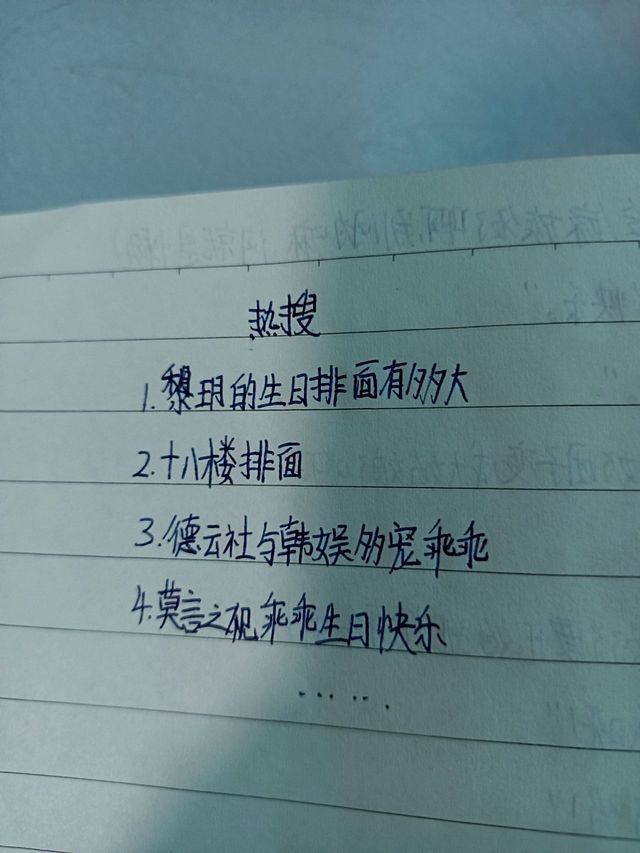 热搜
1.黎玥的生日排面有多大
2.十八楼排面
3.德云社与韩娱多宠乖乖
4.莫言之祝乖乖生日快乐
......